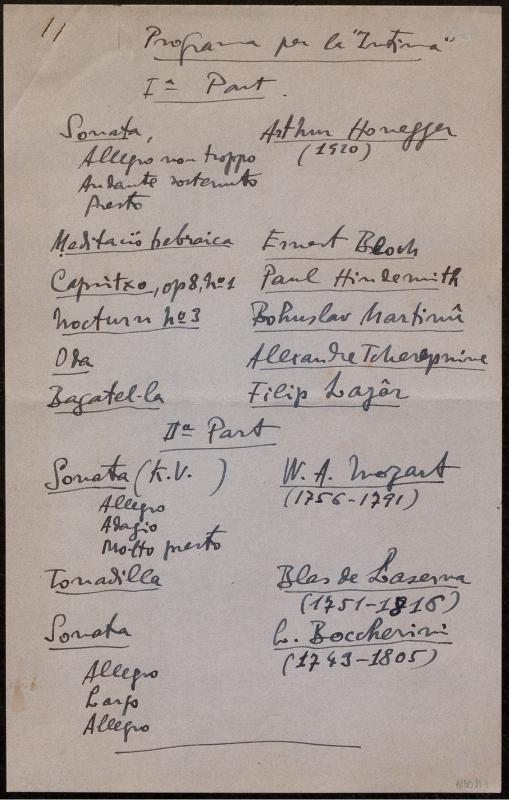 11
Programa per la "Intima"
Iª Part.
Sonata, Arthur Honegger
Allegro non troppo (1920)
Andante sostenuto
Presto
Meditació hebraica Ernest Bloch
Capritxo, op 8, nº 1 Paul Hindemith
Nocturn nº 3 Bohuslav Martinû
Oda Alexandre Tcherepnine
Bagatel·la Filip Lazâr
IIª Part
Sonata (K.V. ) W. A. Mozart
Allegro (1756-1791)
Adagio
Molto presto
Tonadilla Blas de Laserna
(1751-1816)
Sonata L. Boccherini
(1743-1805)
Allegro
Largo
Allegro